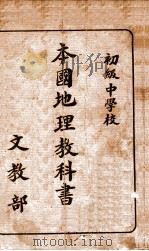 初級中學校
本國地理教科書
文教部